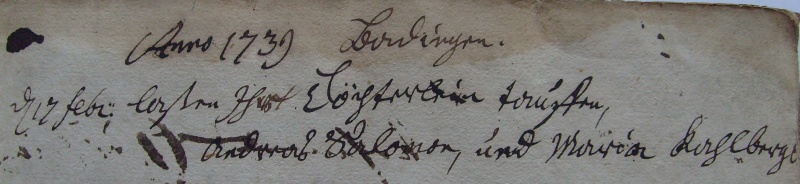 Anno 1739 Badingen.
d 17 febr: laßen Ihr Töchterlein tauffen,
Andreas Salomon, und Maria Kahlbergs